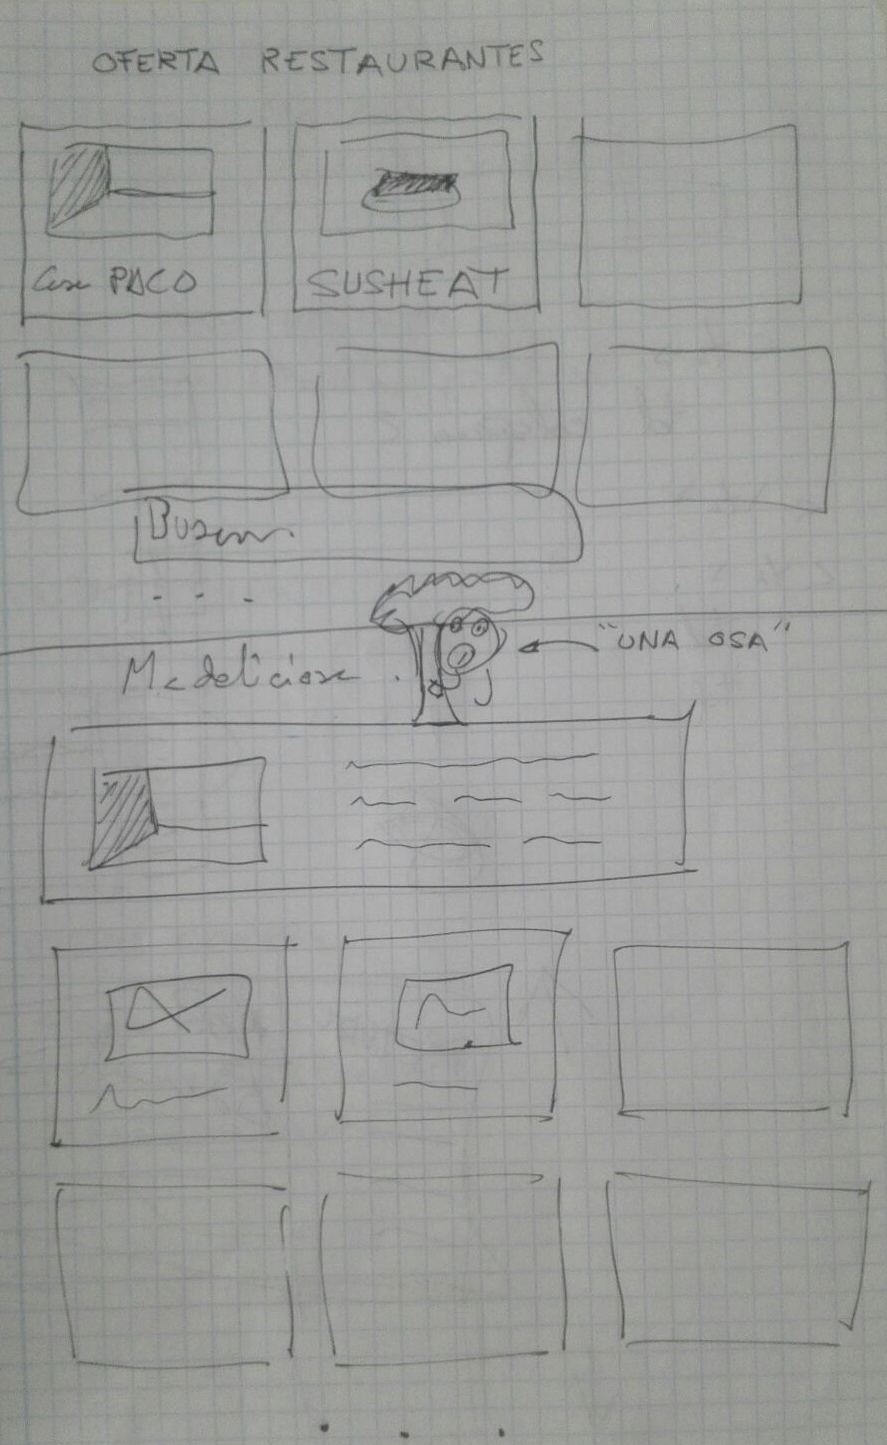 OFERTA RESTAURANTES
Casa PACO
SUSHEAT
Buscar
. . .
Madeliciosa
"UNA OSA"
. . .